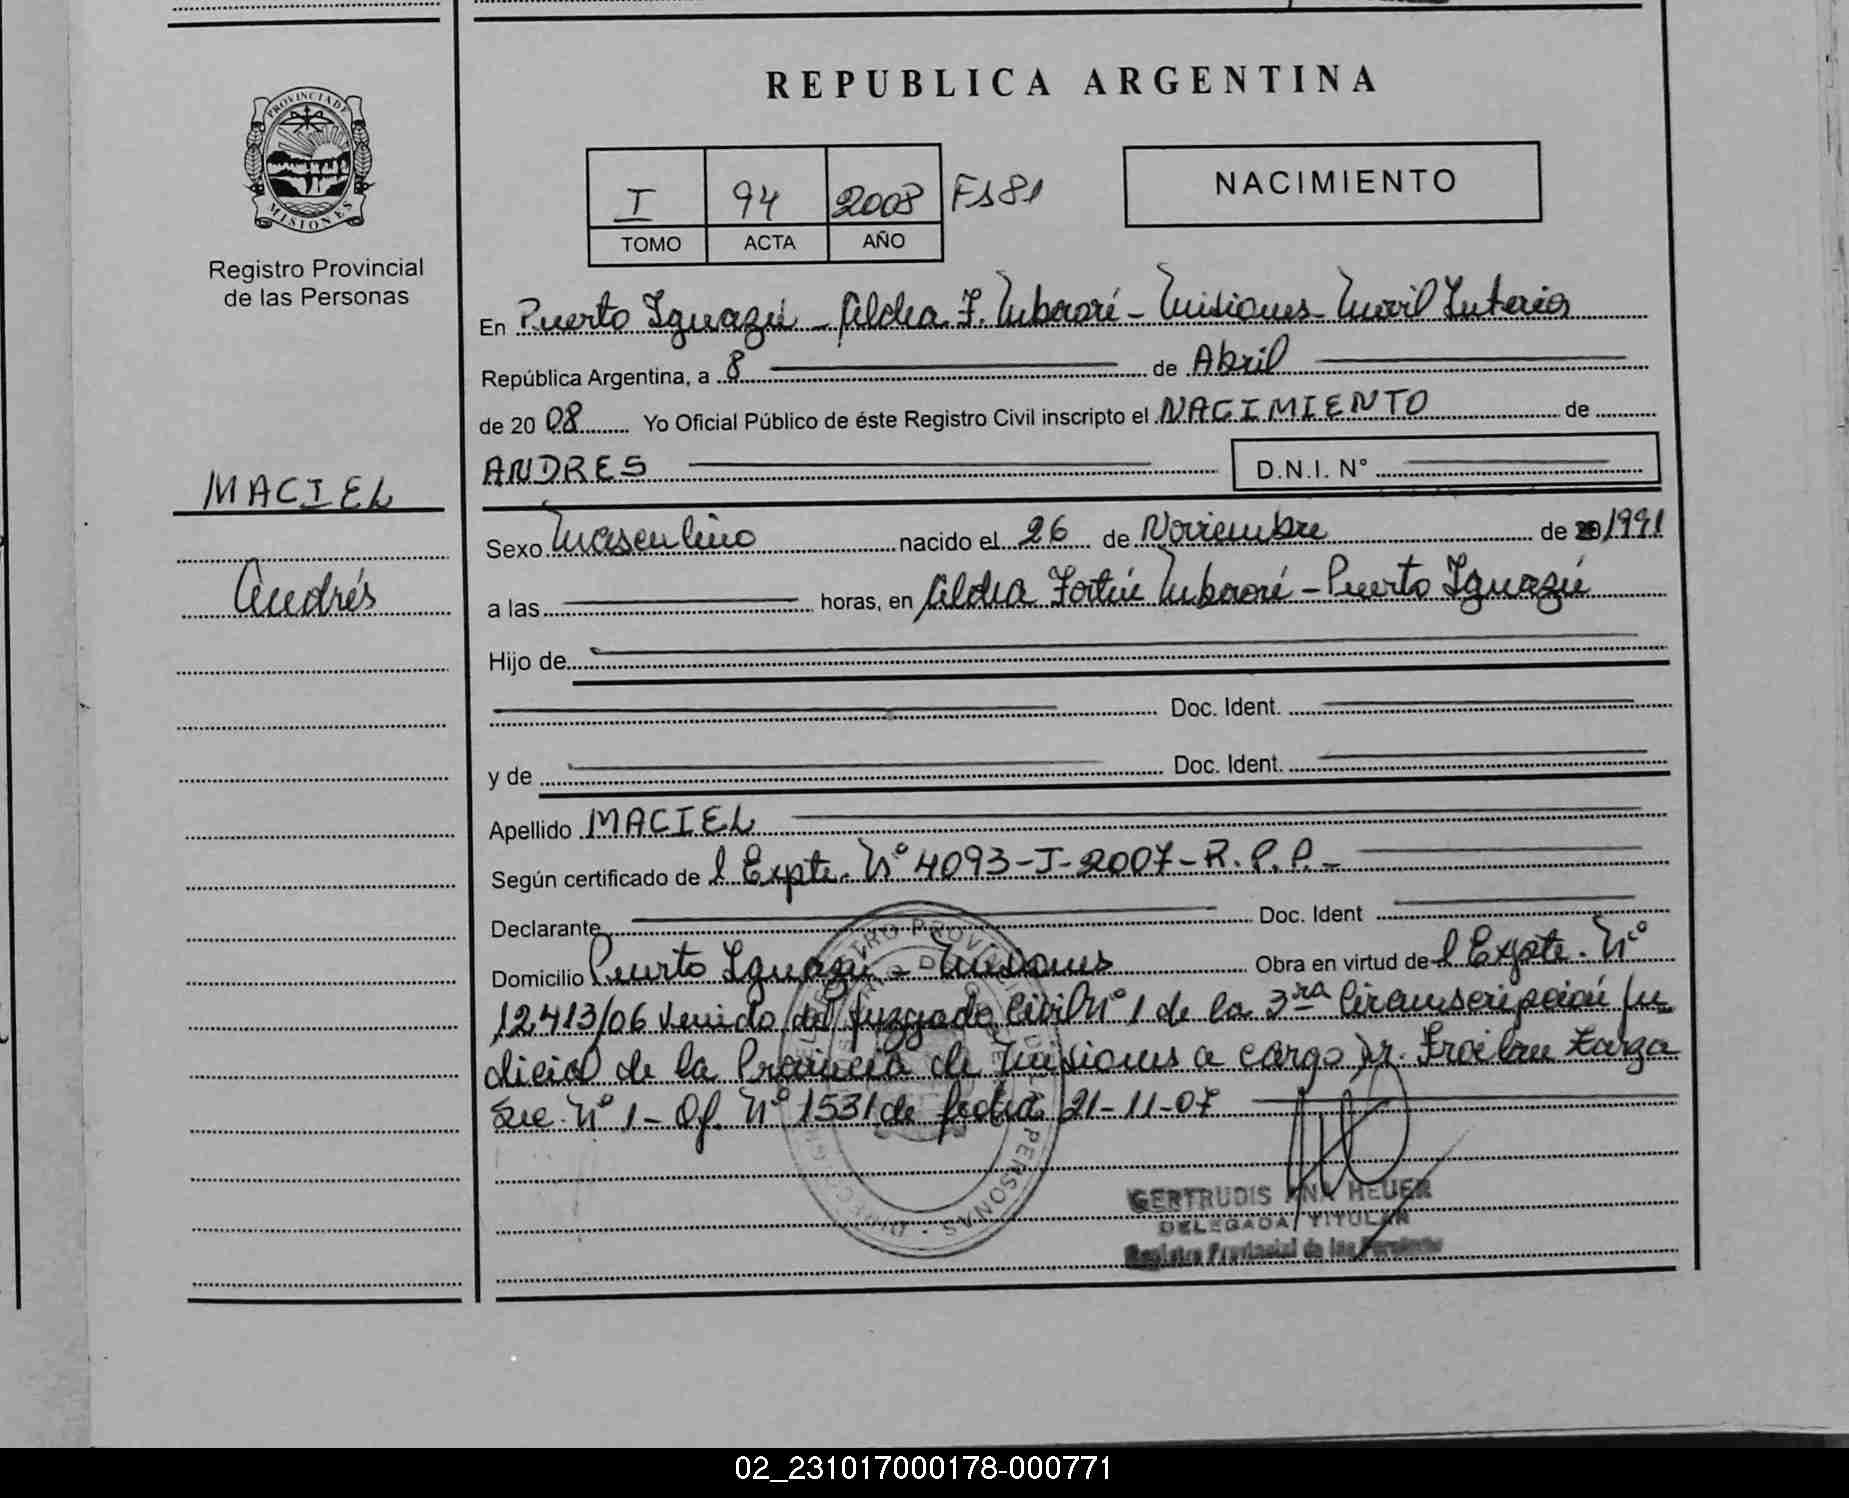 REPUBLICA ARGENTINA
PROVINCIA DE
MISIONES
Registro Provincial
de las Personas
I 94 2008 Fs 81
TOMO ACTA AÑO
NACIMIENTO
En Puerto Iguazú - Aldea F. Mbororé - Misiones - Movil Interior
República Argentina, a 8 de Abril
de 20 08 Yo Oficial Público de éste Registro Civil inscripto el NACIMIENTO de
ANDRES D.N.I. N°
MACIEL
Andrés
Sexo Masculino nacido el 26 de Noviembre de 1991
a las horas, en Aldea Fortín Mbororé - Puerto Iguazú
Hijo de
Doc. Ident.
y de Doc. Ident.
Apellido MACIEL
Según certificado de l Expte. N° 4093-I-2007-R.P.P.-
Declarante Doc. Ident
Domicilio Puerto Iguazú - Misiones Obra en virtud de l Expte. N°
12413/06 venido del Juzgado Civil N° 1 de la 3ra Circunscripción Ju
dicial de la Provincia de Misiones a cargo Dr. Froilan Zarza
Sec. N° 1 - Of. N° 1531 de fecha 21-11-07
GERTRUDIS ANA HEUER
DELEGADA TITULAR
Registro Provincial de las Personas
02_231017000178-000771